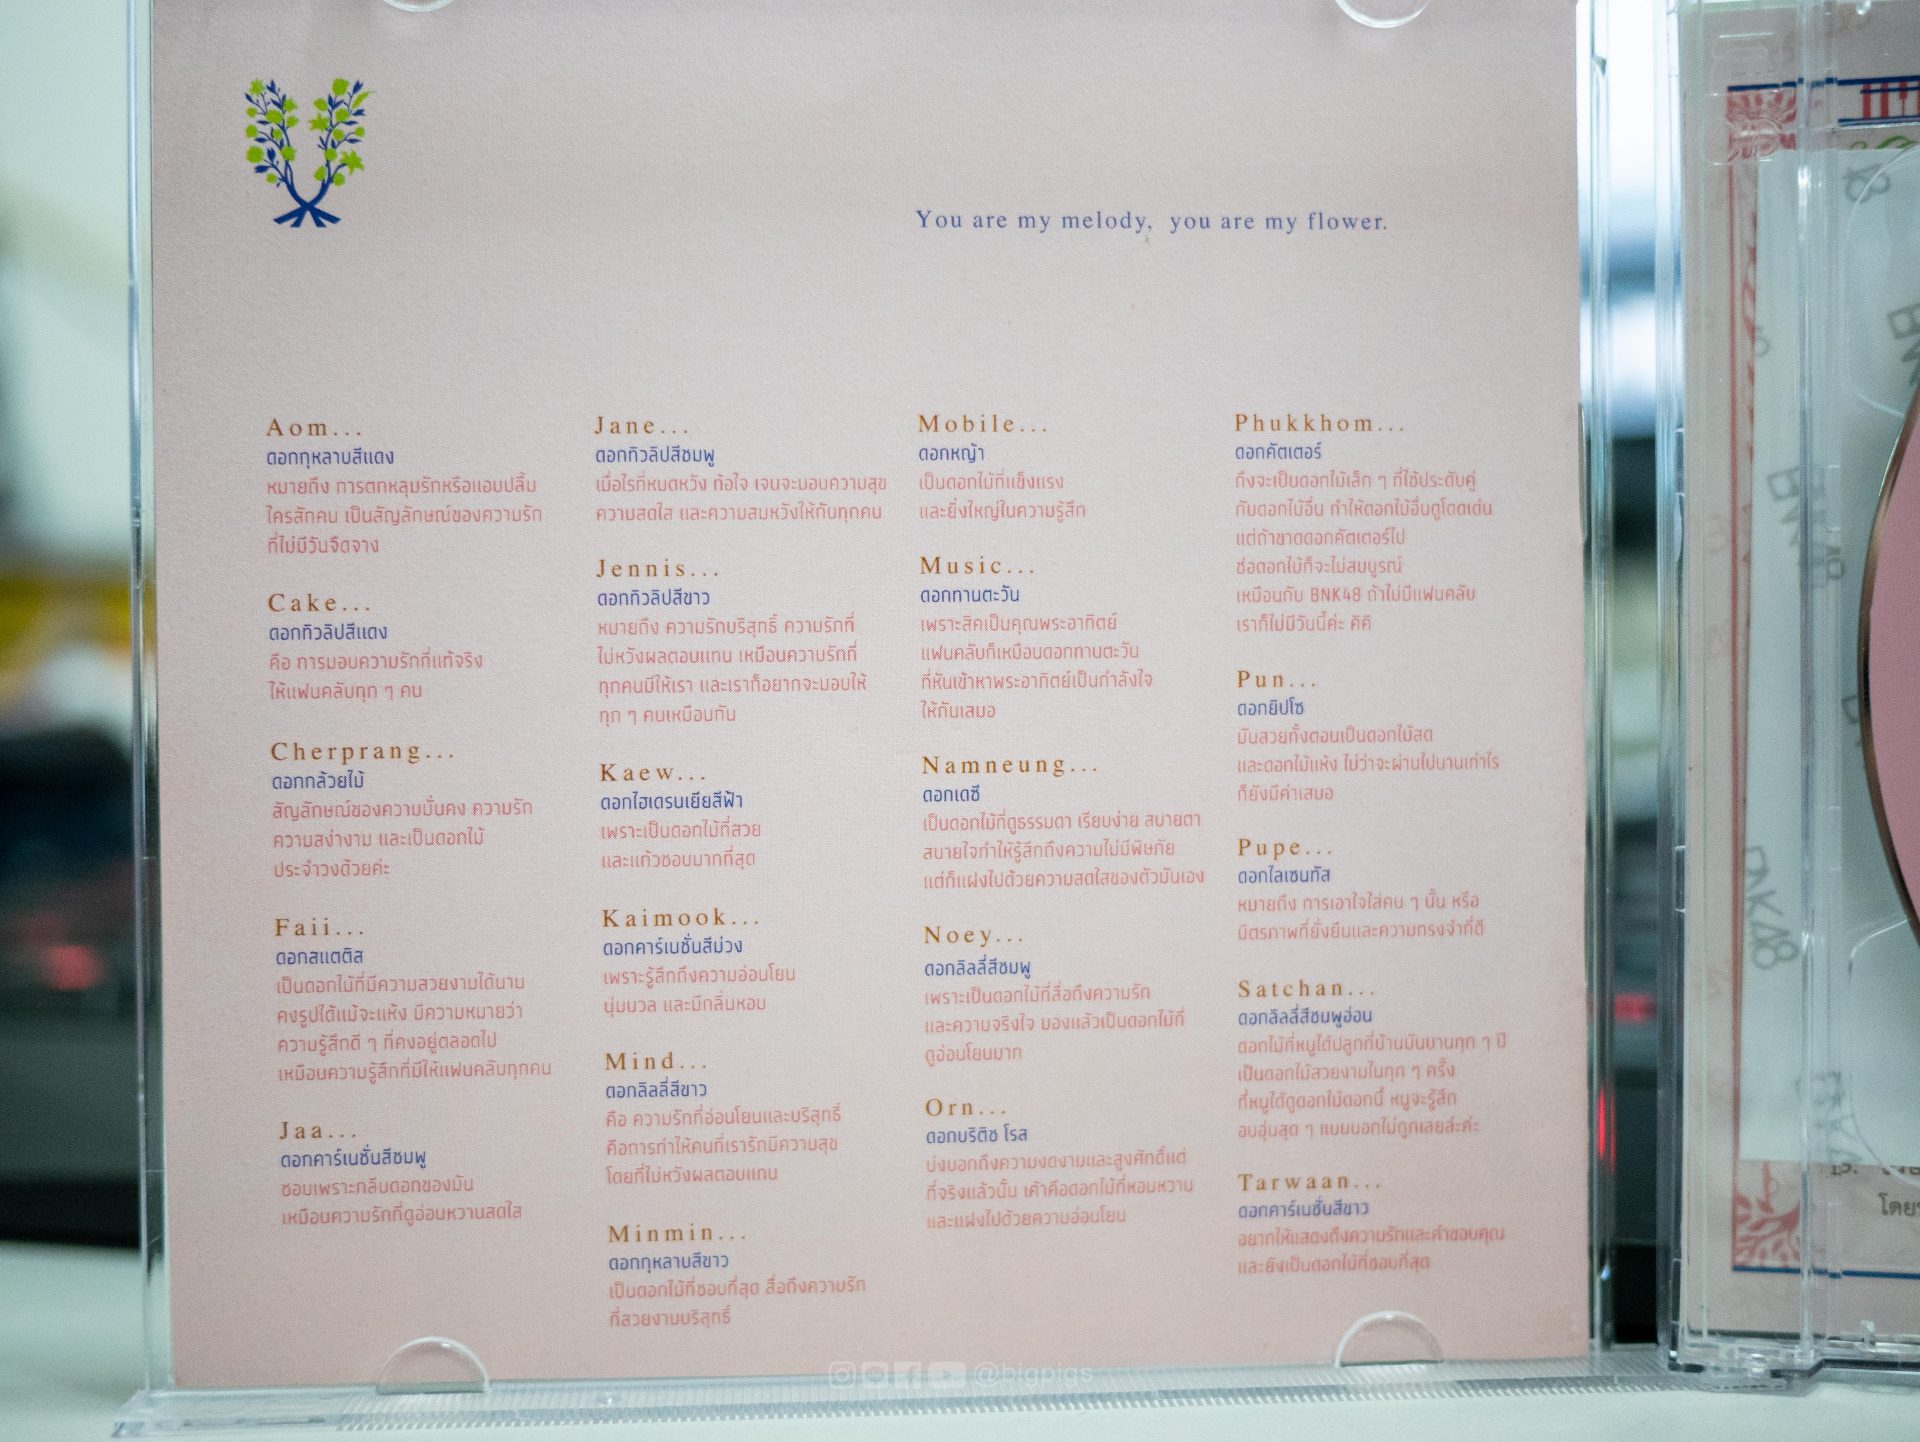 You are my melody, you are my flower.
Aom...
ดอกกุหลาบสีแดง
หมายถึง การตกหลุมรักหรือแอบปลื้ม
ใครสักคน เป็นสัญลักษณ์ของความรัก
ที่ไม่มีวันจืดจาง
Cake...
ดอกทิวลิปสีแดง
คือ การมอบความรักที่แท้จริง
ให้แฟนคลับทุก ๆ คน
Cherprang...
ดอกกล้วยไม้
สัญลักษณ์ของความมั่นคง ความรัก
ความสง่างาม และเป็นดอกไม้
ประจำวงด้วยค่ะ
Faii...
ดอกสแตติส
เป็นดอกไม้ที่มีความสวยงามได้นาน
คงรูปได้แม้จะแห้ง มีความหมายว่า
ความรู้สึกดี ๆ ที่คงอยู่ตลอดไป
เหมือนความรู้สึกที่มีให้แฟนคลับทุกคน
Jaa...
ดอกคาร์เนชั่นสีชมพู
ชอบเพราะกลีบดอกของมัน
เหมือนความรักที่ดูอ่อนหวานสดใส
Jane...
ดอกทิวลิปสีชมพู
เมื่อไรที่หมดหวัง ท้อใจ เจนจะมอบความสุข
ความสดใส และความสมหวังให้กับทุกคน
Jennis...
ดอกทิวลิปสีขาว
หมายถึง ความรักบริสุทธิ์ ความรักที่
ไม่หวังผลตอบแทน เหมือนความรักที่
ทุกคนมีให้เรา และเราก็อยากจะมอบให้
ทุก ๆ คนเหมือนกัน
Kaew...
ดอกไฮเดรนเยียสีฟ้า
เพราะเป็นดอกไม้ที่สวย
และแก้วชอบมากที่สุด
Kaimook...
ดอกคาร์เนชั่นสีม่วง
เพราะรู้สึกถึงความอ่อนโยน
นุ่มนวล และมีกลิ่นหอม
Mind...
ดอกลิลลี่สีขาว
คือ ความรักที่อ่อนโยนและบริสุทธิ์
คือการทำให้คนที่เรารักมีความสุข
โดยที่ไม่หวังผลตอบแทน
Minmin...
ดอกกุหลาบสีขาว
เป็นดอกไม้ที่ชอบที่สุด สื่อถึงความรัก
ที่สวยงามบริสุทธิ์
Mobile...
ดอกหญ้า
เป็นดอกไม้ที่แข็งแรง
และยิ่งใหญ่ในความรู้สึก
Music...
ดอกทานตะวัน
เพราะสิคเป็นคุณพระอาทิตย์
แฟนคลับก็เหมือนดอกทานตะวัน
ที่หันเข้าหาพระอาทิตย์เป็นกำลังใจ
ให้กันเสมอ
Namneung...
ดอกเดซี
เป็นดอกไม้ที่ดูธรรมดา เรียบง่าย สบายตา
สบายใจทำให้รู้สึกถึงความไม่มีพิษภัย
แต่ก็แฝงไปด้วยความสดใสของตัวมันเอง
Noey...
ดอกลิลลี่สีชมพู
เพราะเป็นดอกไม้ที่สื่อถึงความรัก
และความจริงใจ มองแล้วเป็นดอกไม้ที่
ดูอ่อนโยนมาก
Orn...
ดอกบริติช โรส
บ่งบอกถึงความงดงามและสูงศักดิ์แต่
ที่จริงแล้วนั้น เค้าคือดอกไม้ที่หอมหวาน
และแฝงไปด้วยความอ่อนโยน
Phukkhom...
ดอกคัตเตอร์
ถึงจะเป็นดอกไม้เล็ก ๆ ที่ใช้ประดับคู่
กับดอกไม้อื่น ทำให้ดอกไม้อื่นดูโดดเด่น
แต่ถ้าขาดดอกคัตเตอร์ไป
ช่อดอกไม้ก็จะไม่สมบูรณ์
เหมือนกับ BNK48 ถ้าไม่มีแฟนคลับ
เราก็ไม่มีวันนี้ค่ะ คิคิ
Pun...
ดอกยิปโซ
มันสวยทั้งตอนเป็นดอกไม้สด
และดอกไม้แห้ง ไม่ว่าจะผ่านไปนานเท่าไร
ก็ยังมีค่าเสมอ
Pupe...
ดอกไลเซนทัส
หมายถึง การเอาใจใส่คน ๆ นั้น หรือ
มิตรภาพที่ยั่งยืนและความทรงจำที่ดี
Satchan...
ดอกลิลลี่สีชมพูอ่อน
ดอกไม้ที่หนูได้ปลูกที่บ้านมันบานทุก ๆ ปี
เป็นดอกไม้สวยงามในทุก ๆ ครั้ง
ที่หนูได้ดูดอกไม้ดอกนี้ หนูจะรู้สึก
อบอุ่นสุด ๆ แบบบอกไม่ถูกเลยล่ะค่ะ
Tarwaan...
ดอกคาร์เนชั่นสีขาว
อยากให้แสดงถึงความรักและคำขอบคุณ
และยังเป็นดอกไม้ที่ชอบที่สุด
@bigpigs